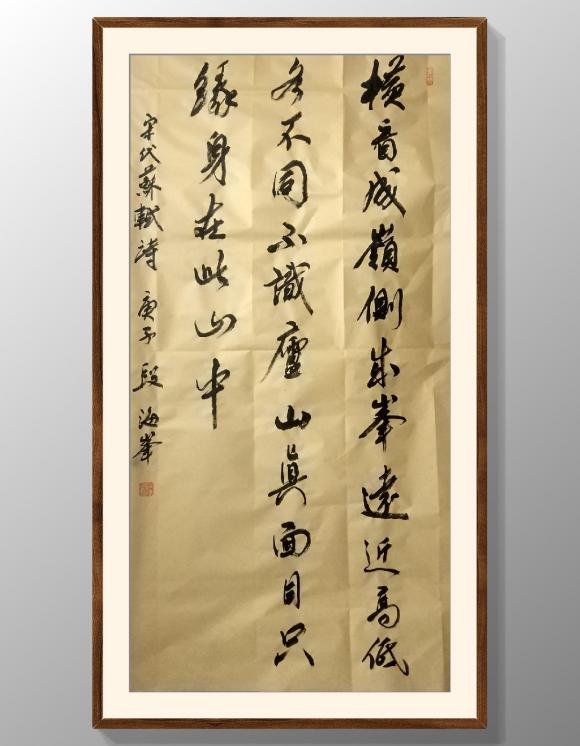 橫看成嶺側成峯遠近高低
各不同不識廬山真面目只
緣身在此山中
宋代蘇軾詩 庚子 段海峯